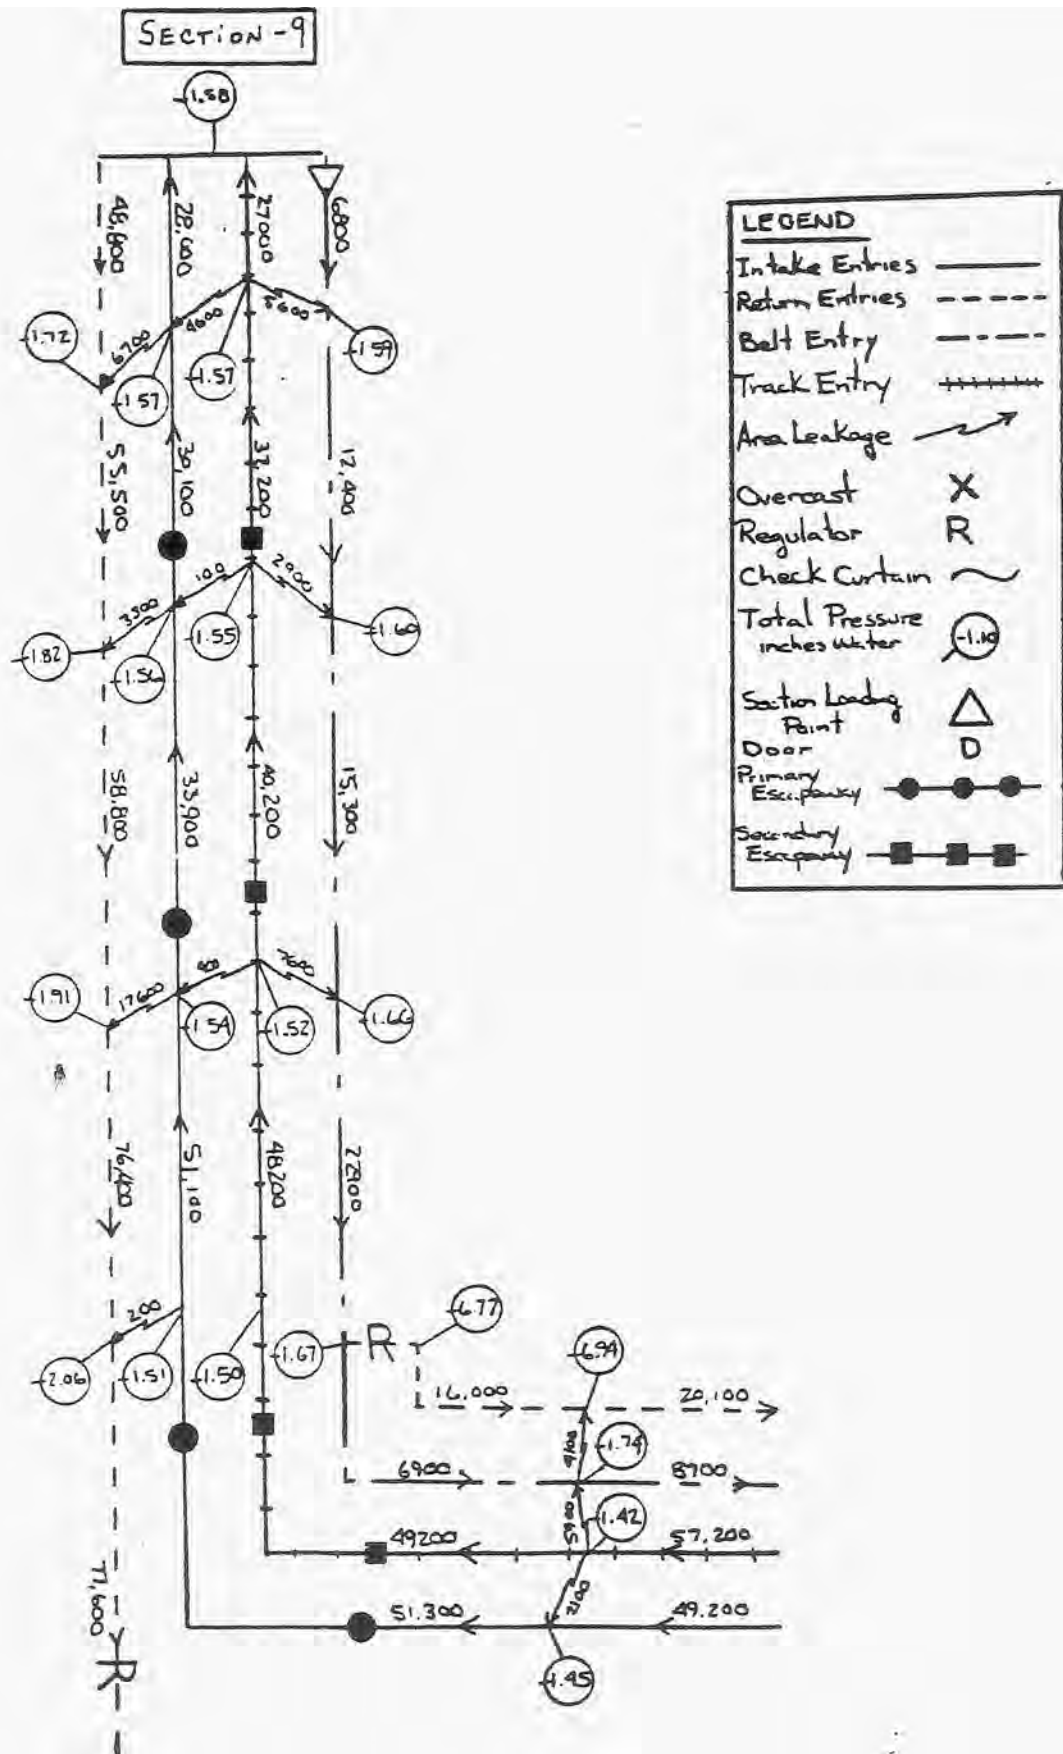 SECTION-9
-1.58
48,800
28,600
27000
6800
4600
5600
6700
-1.72
-1.57
-1.57
-1.59
55,500
30,100
37,200
12,400
100
2900
3300
-1.82
-1.56
-1.55
-1.60
58.800
33,900
40,200
15,300
7600
17600
-1.91
-1.54
-1.52
-1.66
76,400
51,100
48200
22900
200
-2.06
-1.51
-1.50
-1.67
R
-6.77
-6.94
16.000
20,100
4100
-1.74
6900
8700
5900
-1.42
49200
57.200
2100
51.300
49.200
-1.45
77,600
R
LEGEND
Intake Entries
Return Entries
Belt Entry
Track Entry
Area Leakage
Overcast X
Regulator R
Check Curtain
Total Pressure
inches Water -1.10
Section Loading
Point
Door D
Primary
Escapeway
Secondary
Escapeway